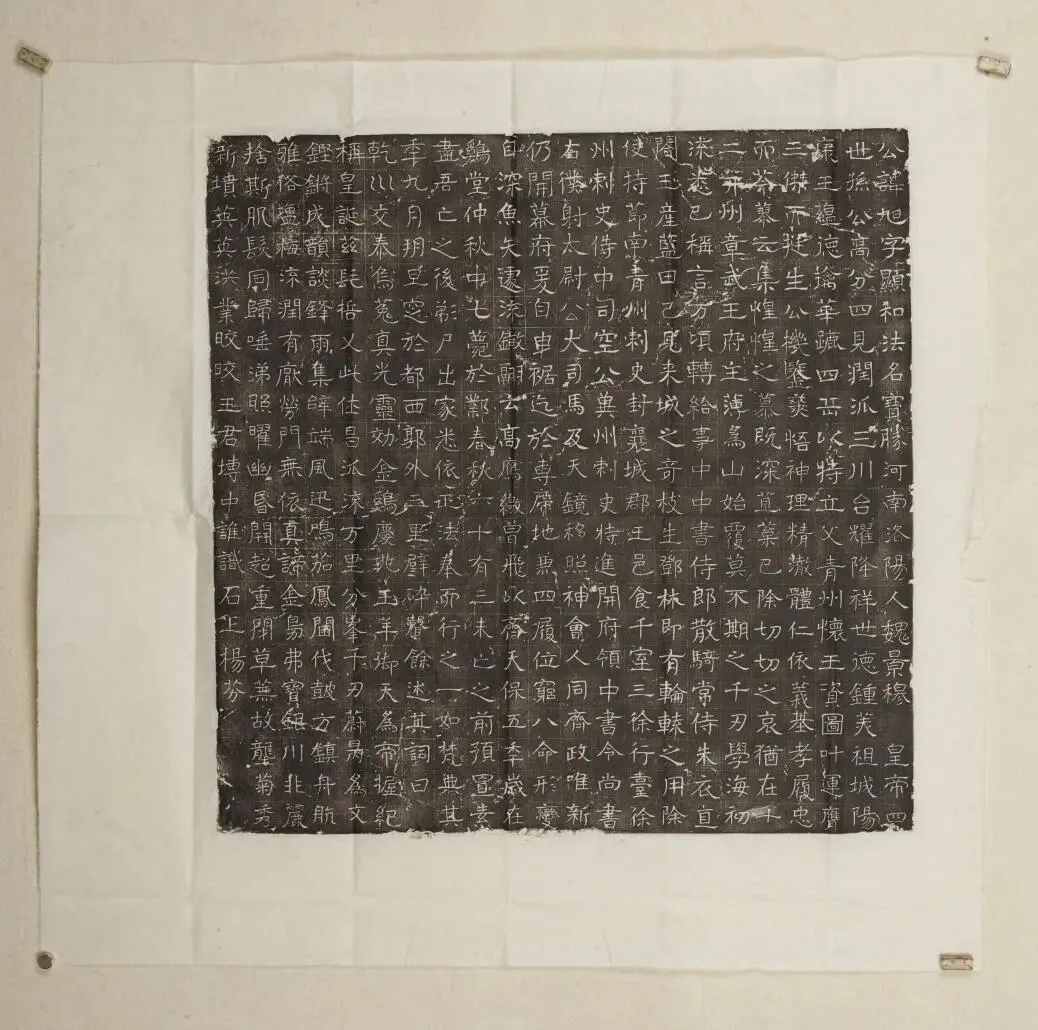 公諱旭字顯和法名寶勝河南洛陽人魏景穆皇帝四
世孫公高分四見潤派三川台耀降祥世德鍾美祖城陽
康王蘊德摛華蹠四岳以特立父青州懷王資圖叶運膺
三傑而挺生公機鑒爽悟神理精澈體仁依義基孝履忠
而荼蓼云集惶惶之慕既深苴菒已除切切之哀猶在十
二 州章武王府主薄為山始覆莫不期之千刃學海初
遠已稱言方頃轉給事中中書侍郎散騎常侍朱衣直
閤玉產藍田已見來城之奇枝生鄧林即有輪轅之用除
使持節南青州刺史封襄城郡王邑食千室三徐行臺徐
州刺史侍中司空公冀州刺史特進開府領中書令尚書
右僕射太尉公大司馬及天鏡移照神會人同齊政唯新
仍開幕府爰自申裾迄於專席地兼四履位窮八命形變
自深魚矢遽流 嗣云高鷹繳曾飛以齊天保五季歲在
鷄堂仲秋中七薨於鄴春秋六十有三未亡之前預置素
盡吾亡之後弟尸出家悉依正法奉而行之一如梵典其
季九月朔旦窆於都西郭外五里辟碎聲餘述其詞曰
乾川交泰烏菟真光靈効金鷄慶兆玉羊御天為帝握紀
稱皇誕茲民悟乂此住昌派流万里分峯千刃蔚昺為文
鏗鏘成韻談鋒雨集辭端風迅鳴茄鳳闔伐鼓方鎮舟航
雅俗 流潤有廠勞門無依真諦金烏弗寶銀川非麗
捨斯服髮同歸唾涕照曜幽昏開超重閉草蕪故壟菊秀
新墳英英洪業皎皎王君塼中誰識石上楊芬